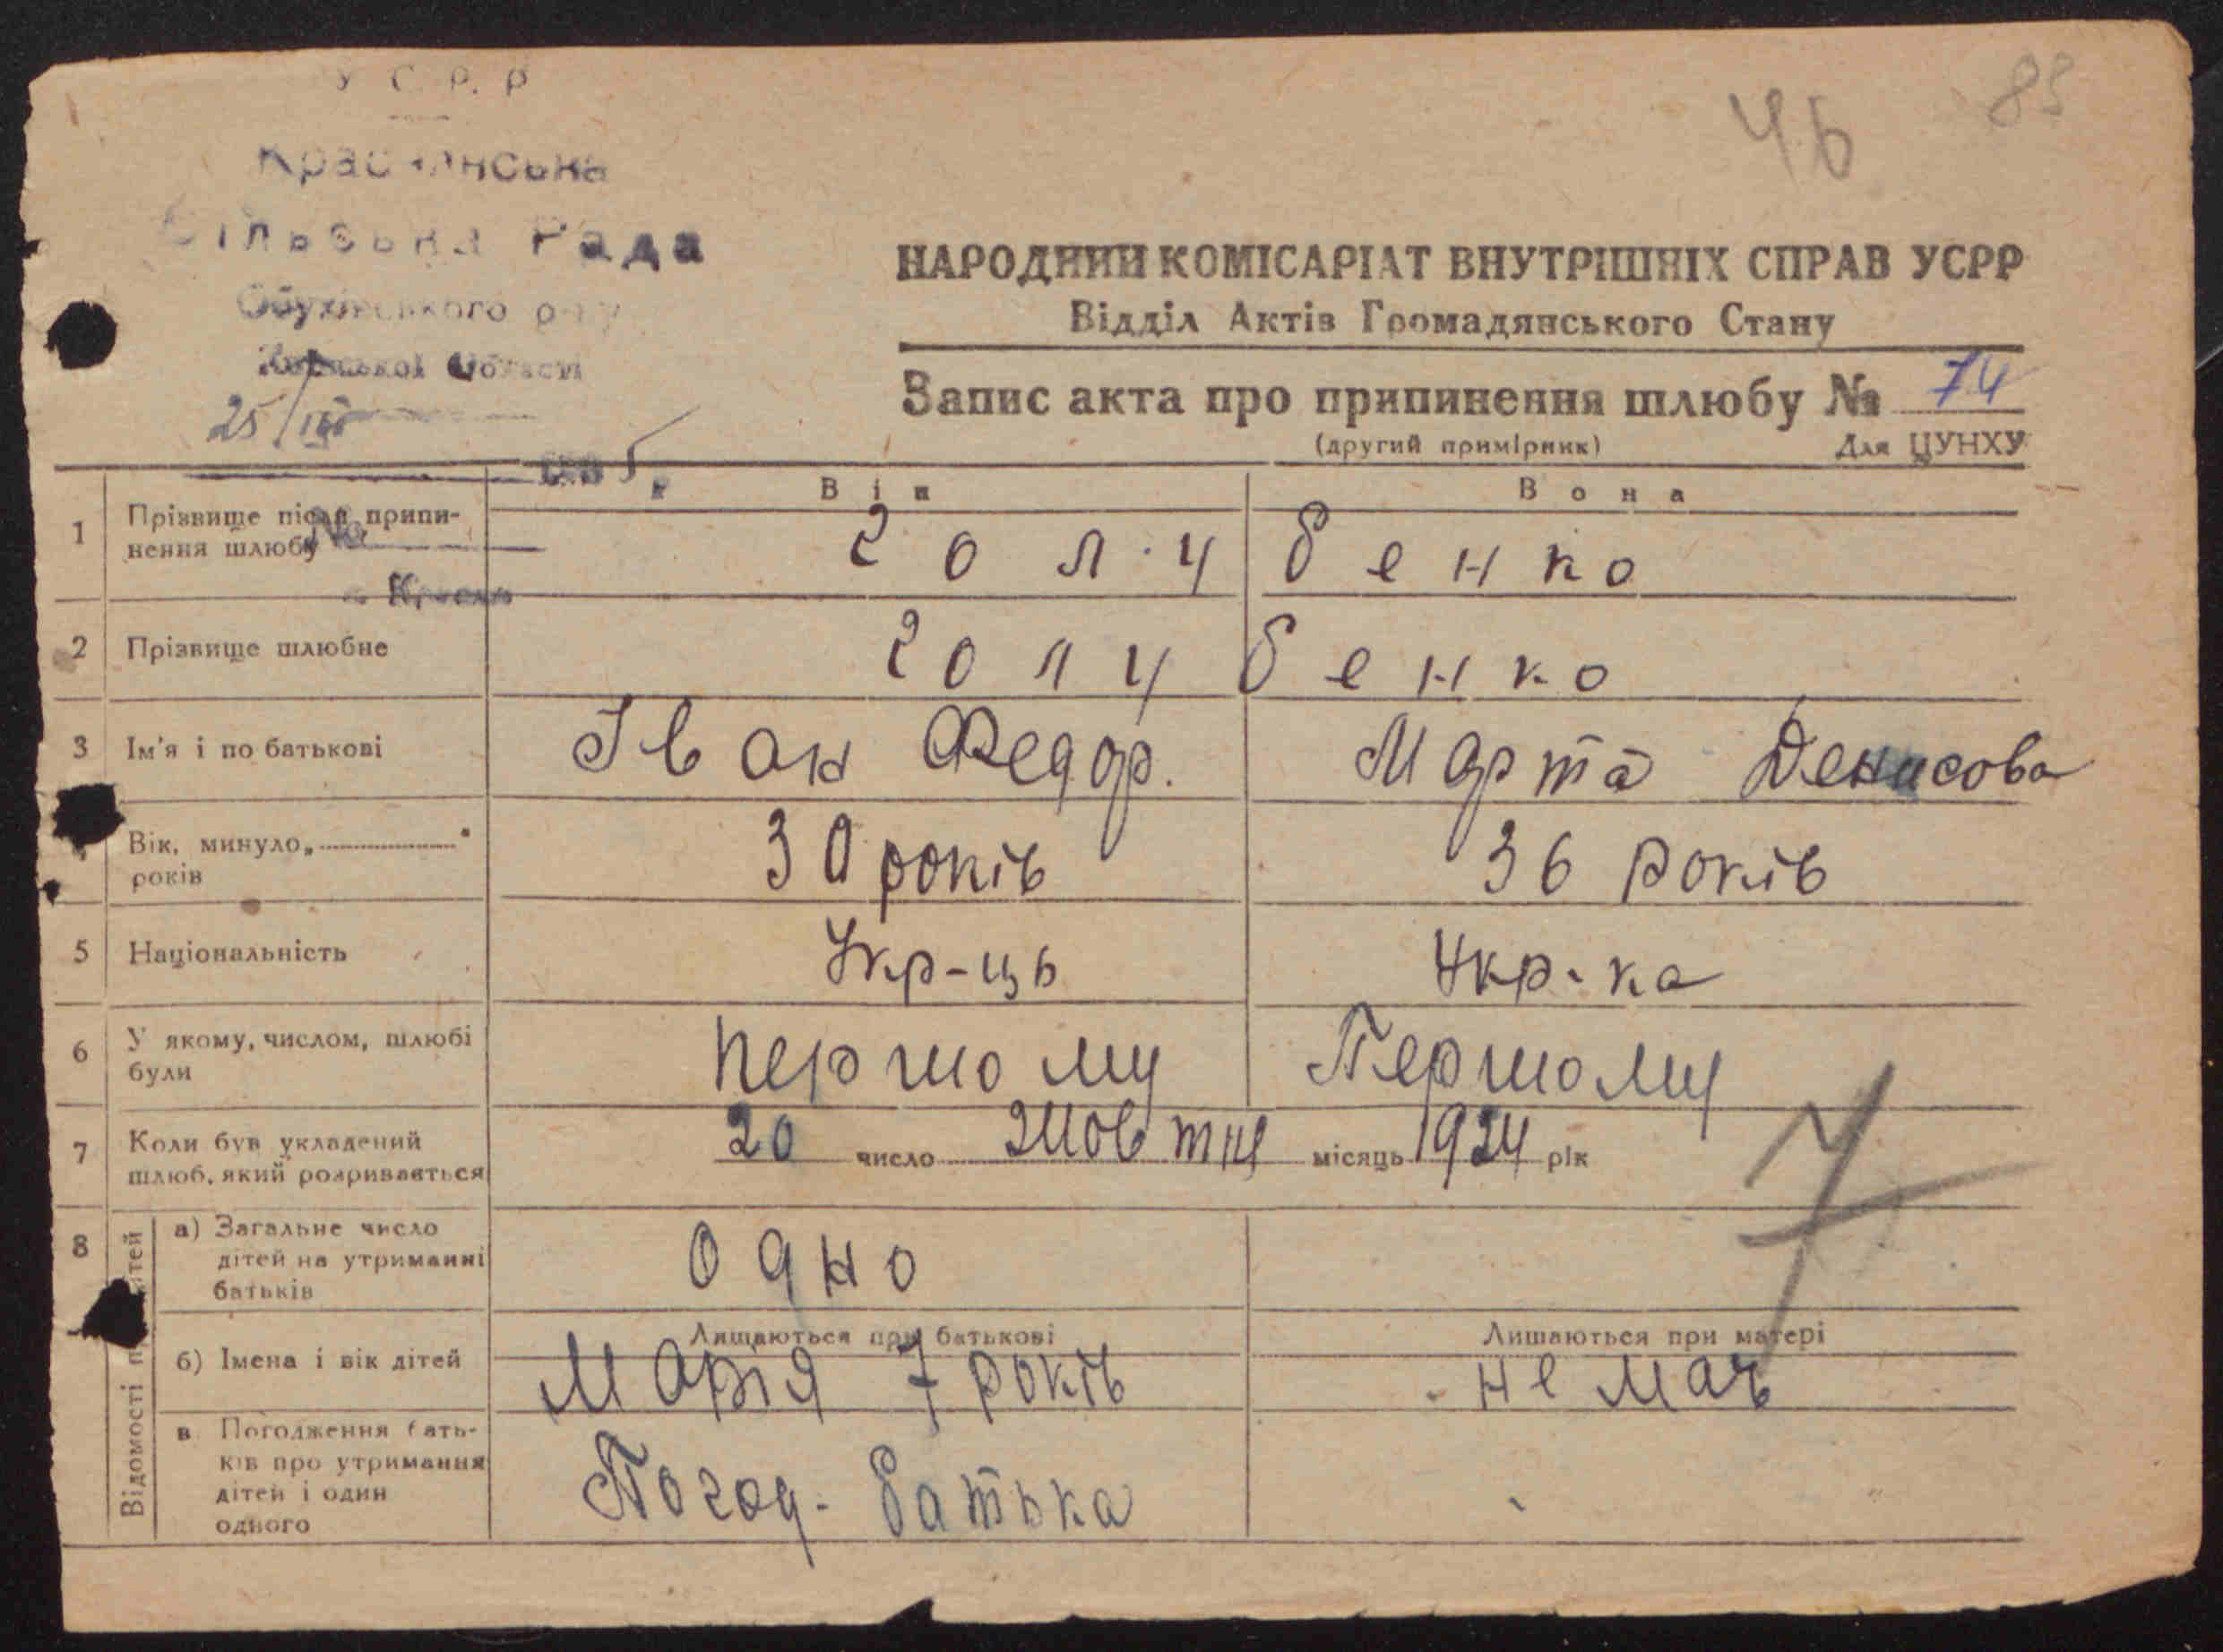 У С. Р. Р
Красянська
Сільська Рада
Обухівського р-ну
Київської Області
25/III
5
№
46
85
НАРОДНИЙ КОМІСАРІАТ ВНУТРІШНІХ СПРАВ УСРР
Відділ Актів Громадянського Стану
Запис акта про припинення шлюбу № 74
(другий примірник) Для ЦУНХУ
Він Вона
1 Прізвище після припи-
нення шлюбу Голубенко
2 Прізвище шлюбне Голубенко
3 Ім'я і по батькові Іван Федор. Марта Денисова
Вік, минуло „ “
років 30 років 36 років
5 Національність Укр-ць Укр-ка
6 У якому, числом, шлюбі
були першому Першому
7 Коли був укладений
шлюб, який розривається 20 число Жовтня місяць 1924 рік
8 Відомості
а) Загальне число
дітей на утриманні
батьків Одно
Лишаються при батькові Лишаються при матері
б) Імена і вік дітей Марія 7 років не має
в Погодження бать-
ків про утримання
дітей і один
одного Погод- батька
7